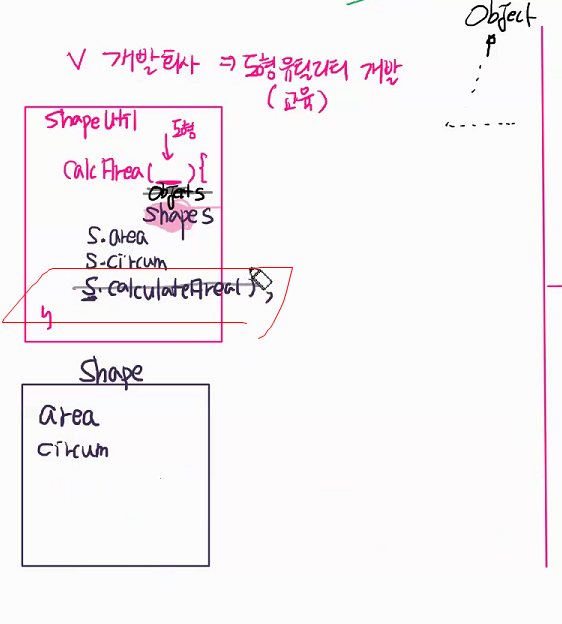 Object
V 개발회사 ⇒ 도형유틸리티 개발
(교육)
Shape Util
도형
CalcArea( ){
Object s
Shape s
s.area
s.circum
s.calculateArea();
}
Shape
area
circum